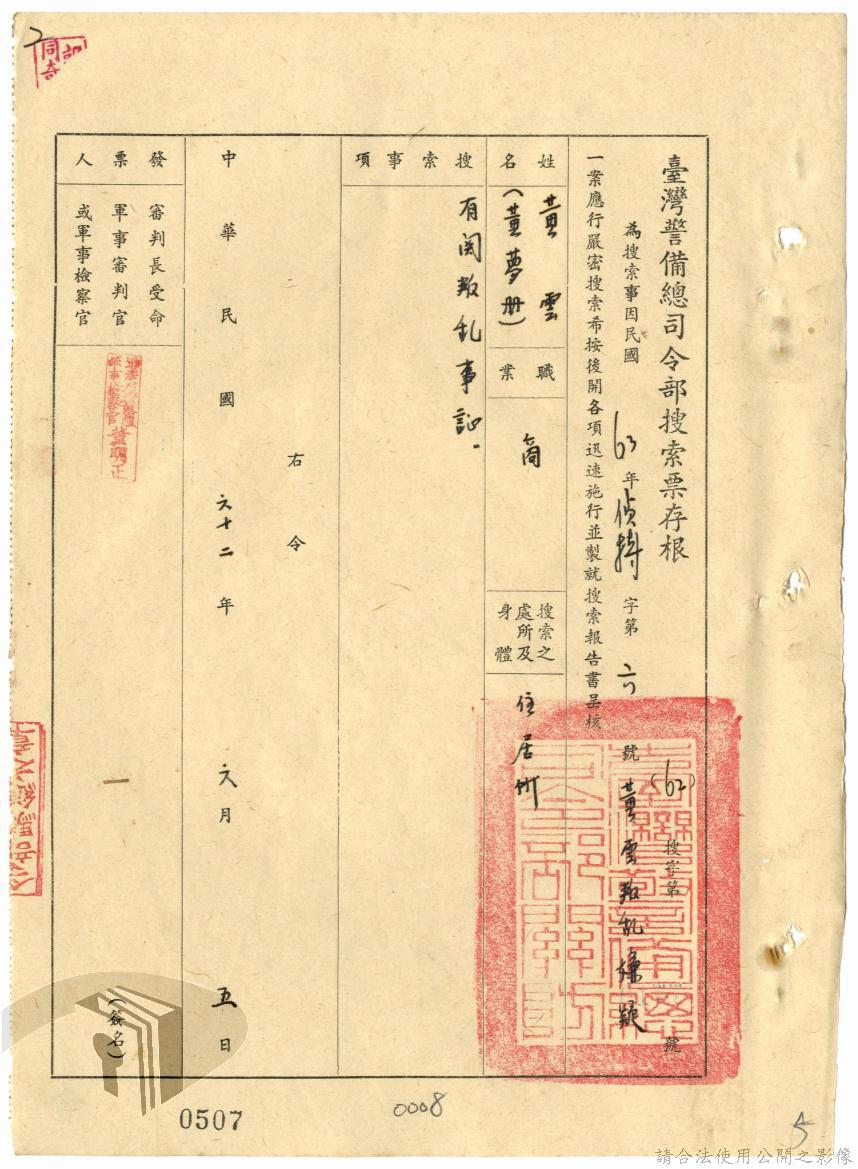 臺灣警備總司令部搜索票存根
(62) 搜字第 號
為搜索事因民國 62 年 偵特 字第 六 號 黃雲叛乱嫌疑
一案應行嚴密搜索希按後開各項迅速施行並製就搜索報告書呈核
姓名 黃雲
(黃夢册)
職業 商
搜索之處所及身體 住居所
搜索事項
有関叛乱事証。
右令
中華民國 六十二年 六月 五日
發票人
審判長受命
軍事審判官
或軍事檢察官
軍事檢察官
董明正
一
(簽名)
0507
0008
5
請合法使用公開之影像